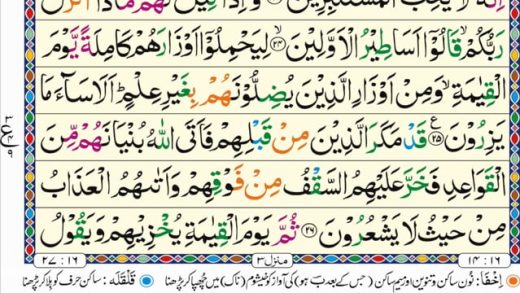 اِنَّهٗ لَا يُحِبُّ الْمُسْتَكْبِرِيْنَ ۞ وَاِذَا قِيْلَ لَهُمْ مَّاذَاۤ اَنْزَلَ
رَبُّكُمْ ۙ قَالُوْۤا اَسَاطِيْرُ الْاَوَّلِيْنَ ۙ﴿۲۴﴾ لِيَحْمِلُوْۤا اَوْزَارَهُمْ كَامِلَةً يَّوْمَ
الْقِيٰمَةِ ۙ وَمِنْ اَوْزَارِ الَّذِيْنَ يُضِلُّوْنَهُمْ بِغَيْرِ عِلْمٍ ؕ اَلَا سَآءَ مَا
يَزِرُوْنَ ﴿۲۵﴾ قَدْ مَكَرَ الَّذِيْنَ مِنْ قَبْلِهِمْ فَاَتَى اللّٰهُ بُنْيَانَهُمْ مِّنَ
الْقَوَاعِدِ فَخَرَّ عَلَيْهِمُ السَّقْفُ مِنْ فَوْقِهِمْ وَاَتٰىهُمُ الْعَذَابُ
مِنْ حَيْثُ لَا يَشْعُرُوْنَ ﴿۲۶﴾ ثُمَّ يَوْمَ الْقِيٰمَةِ يُخْزِيْهِمْ وَيَقُوْلُ
۱۶ : ۱۴ منزل ۳ ۱۶ : ۲۷
اِخفَا: نُون ساکن و تنوین اور میم ساکن (جس کے بعد ب ہو) کی آواز کو خیشوم (ناک) میں چُھپا کر پڑھنا قَلْقَلَه: ساکن حرف کو ہلا کر پڑھنا